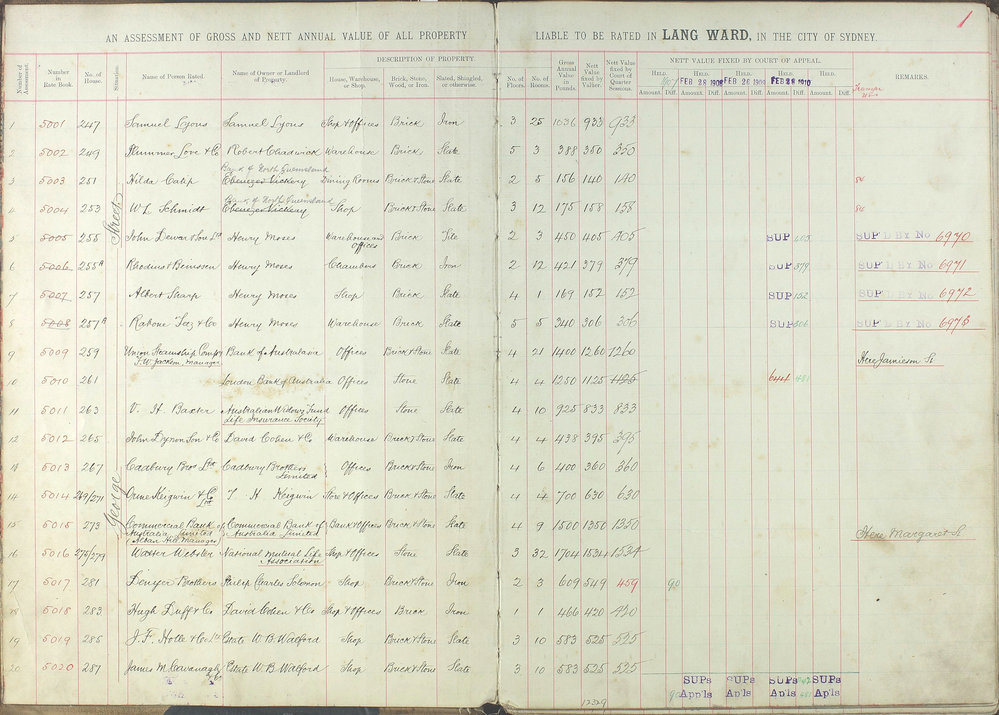 1
AN ASSESSMENT OF GROSS AND NETT ANNUAL VALUE OF ALL PROPERTY LIABLE TO BE RATED IN LANG WARD, IN THE CITY OF SYDNEY.
DESCRIPTION OF PROPERTY. NETT VALUE FIXED BY COURT OF APPEAL.
Number of Assessment. Number in Rate Book. No. of House. Situation. Name of Person Rated. Name of Owner or Landlord of Property. House, Warehouse, or Shop. Brick, Stone, Wood, or Iron. Slated, Shingled, or otherwise. No. of Floors. No. of Rooms. Gross Annual Value in Pounds. Nett Value fixed by Valuer. Nett Value fixed by Court of Quarter Sessions. HELD. HELD. HELD. HELD. HELD. REMARKS.
FEB 28 1908 FEB 26 1909 FEB 28 1910
Amount. Diff. Amount. Diff. Amount. Diff. Amount. Diff. Amount. Diff.
George Street
1 5001 247 Samuel Lyons Samuel Lyons Shop & Offices Brick Iron 3 25 1036 933 933
2 5002 249 Plummer Love & Co Robert Chadwick Warehouse Brick Slate 5 3 388 350 350
Bank of North Queensland
3 5003 251 Hilda Catip Ebenezer Vickery Dining Rooms Brick & Stone Slate 2 5 156 140 140
Bank of North Queensland
4 5004 253 W L Schmidt Ebenezer Vickery Shop Brick & Stone Slate 3 12 175 158 158
5 5005 255 John Dewar & Son Ltd Henry Moses Warehouse and Offices Brick Tile 2 3 450 405 405 SUP 405 SUP'D BY No 6970
6 5006 255A Rhodius & Beinssen Henry Moses Chambers Brick Iron 2 12 421 379 379 SUP 379 SUP'D BY No 6971
7 5007 257 Albert Sharp Henry Moses Shop Brick Slate 4 1 169 152 152 SUP 152 SUP'D BY No 6972
8 5008 257A Rabone Feez & Co Henry Moses Warehouse Brick Slate 5 5 340 306 306 SUP 306 SUP'D BY No 6973
9 5009 259 Union Steamship Compy Bank of Australasia Offices Brick & Stone Slate 4 21 1400 1260 1260
F. W. Jackson, Manager Here Jamieson St
10 5010 261 London Bank of Australia Offices Stone Slate 4 4 1250 1125 1125 644 481
11 5011 263 V. H. Baxter Australian Widows Fund Life Insurance Society Offices Stone Slate 4 10 925 833 833
12 5012 265 John Dynon Son & Co David Cohen & Co Warehouse Brick & Stone Slate 4 4 438 395 395
13 5013 267 Cadbury Bros Ltd Cadbury Brothers Limited Offices Brick & Stone Iron 4 6 400 360 360
14 5014 269/271 Orme Keigwin & Co Ltd T H Keigwin Store & Offices Brick & Stone Slate 4 4 700 630 630
15 5015 273 Commercial Bank of Australia Limited Commercial Bank of Australia Limited Bank & Offices Brick & Stone Slate 4 9 1500 1350 1350
(Alban Hill Manager) Here Margaret St
16 5016 275/279 Walter Webster National Mutual Life Association Shop & Offices Stone Slate 3 32 1704 1534 1534
17 5017 281 Denyer Brothers Philip Charles Solomon Shop Brick & Stone Iron 2 3 609 549 459 90
18 5018 283 Hugh Duff & Co David Cohen & Co Shop & Offices Brick Iron 1 1 466 420 420
19 5019 285 J. F. Hotle & Co Ltd Estate W. B. Walford Shop Brick & Stone Slate 3 10 583 525 525
20 5020 287 James M. Cavanagh & Co Estate W. B. Walford Shop Brick & Stone Slate 3 10 583 525 525
SUPs SUPs SUPs SUPs
90 App'ls Ap'ls Ap'ls 481 Ap'ls
12329